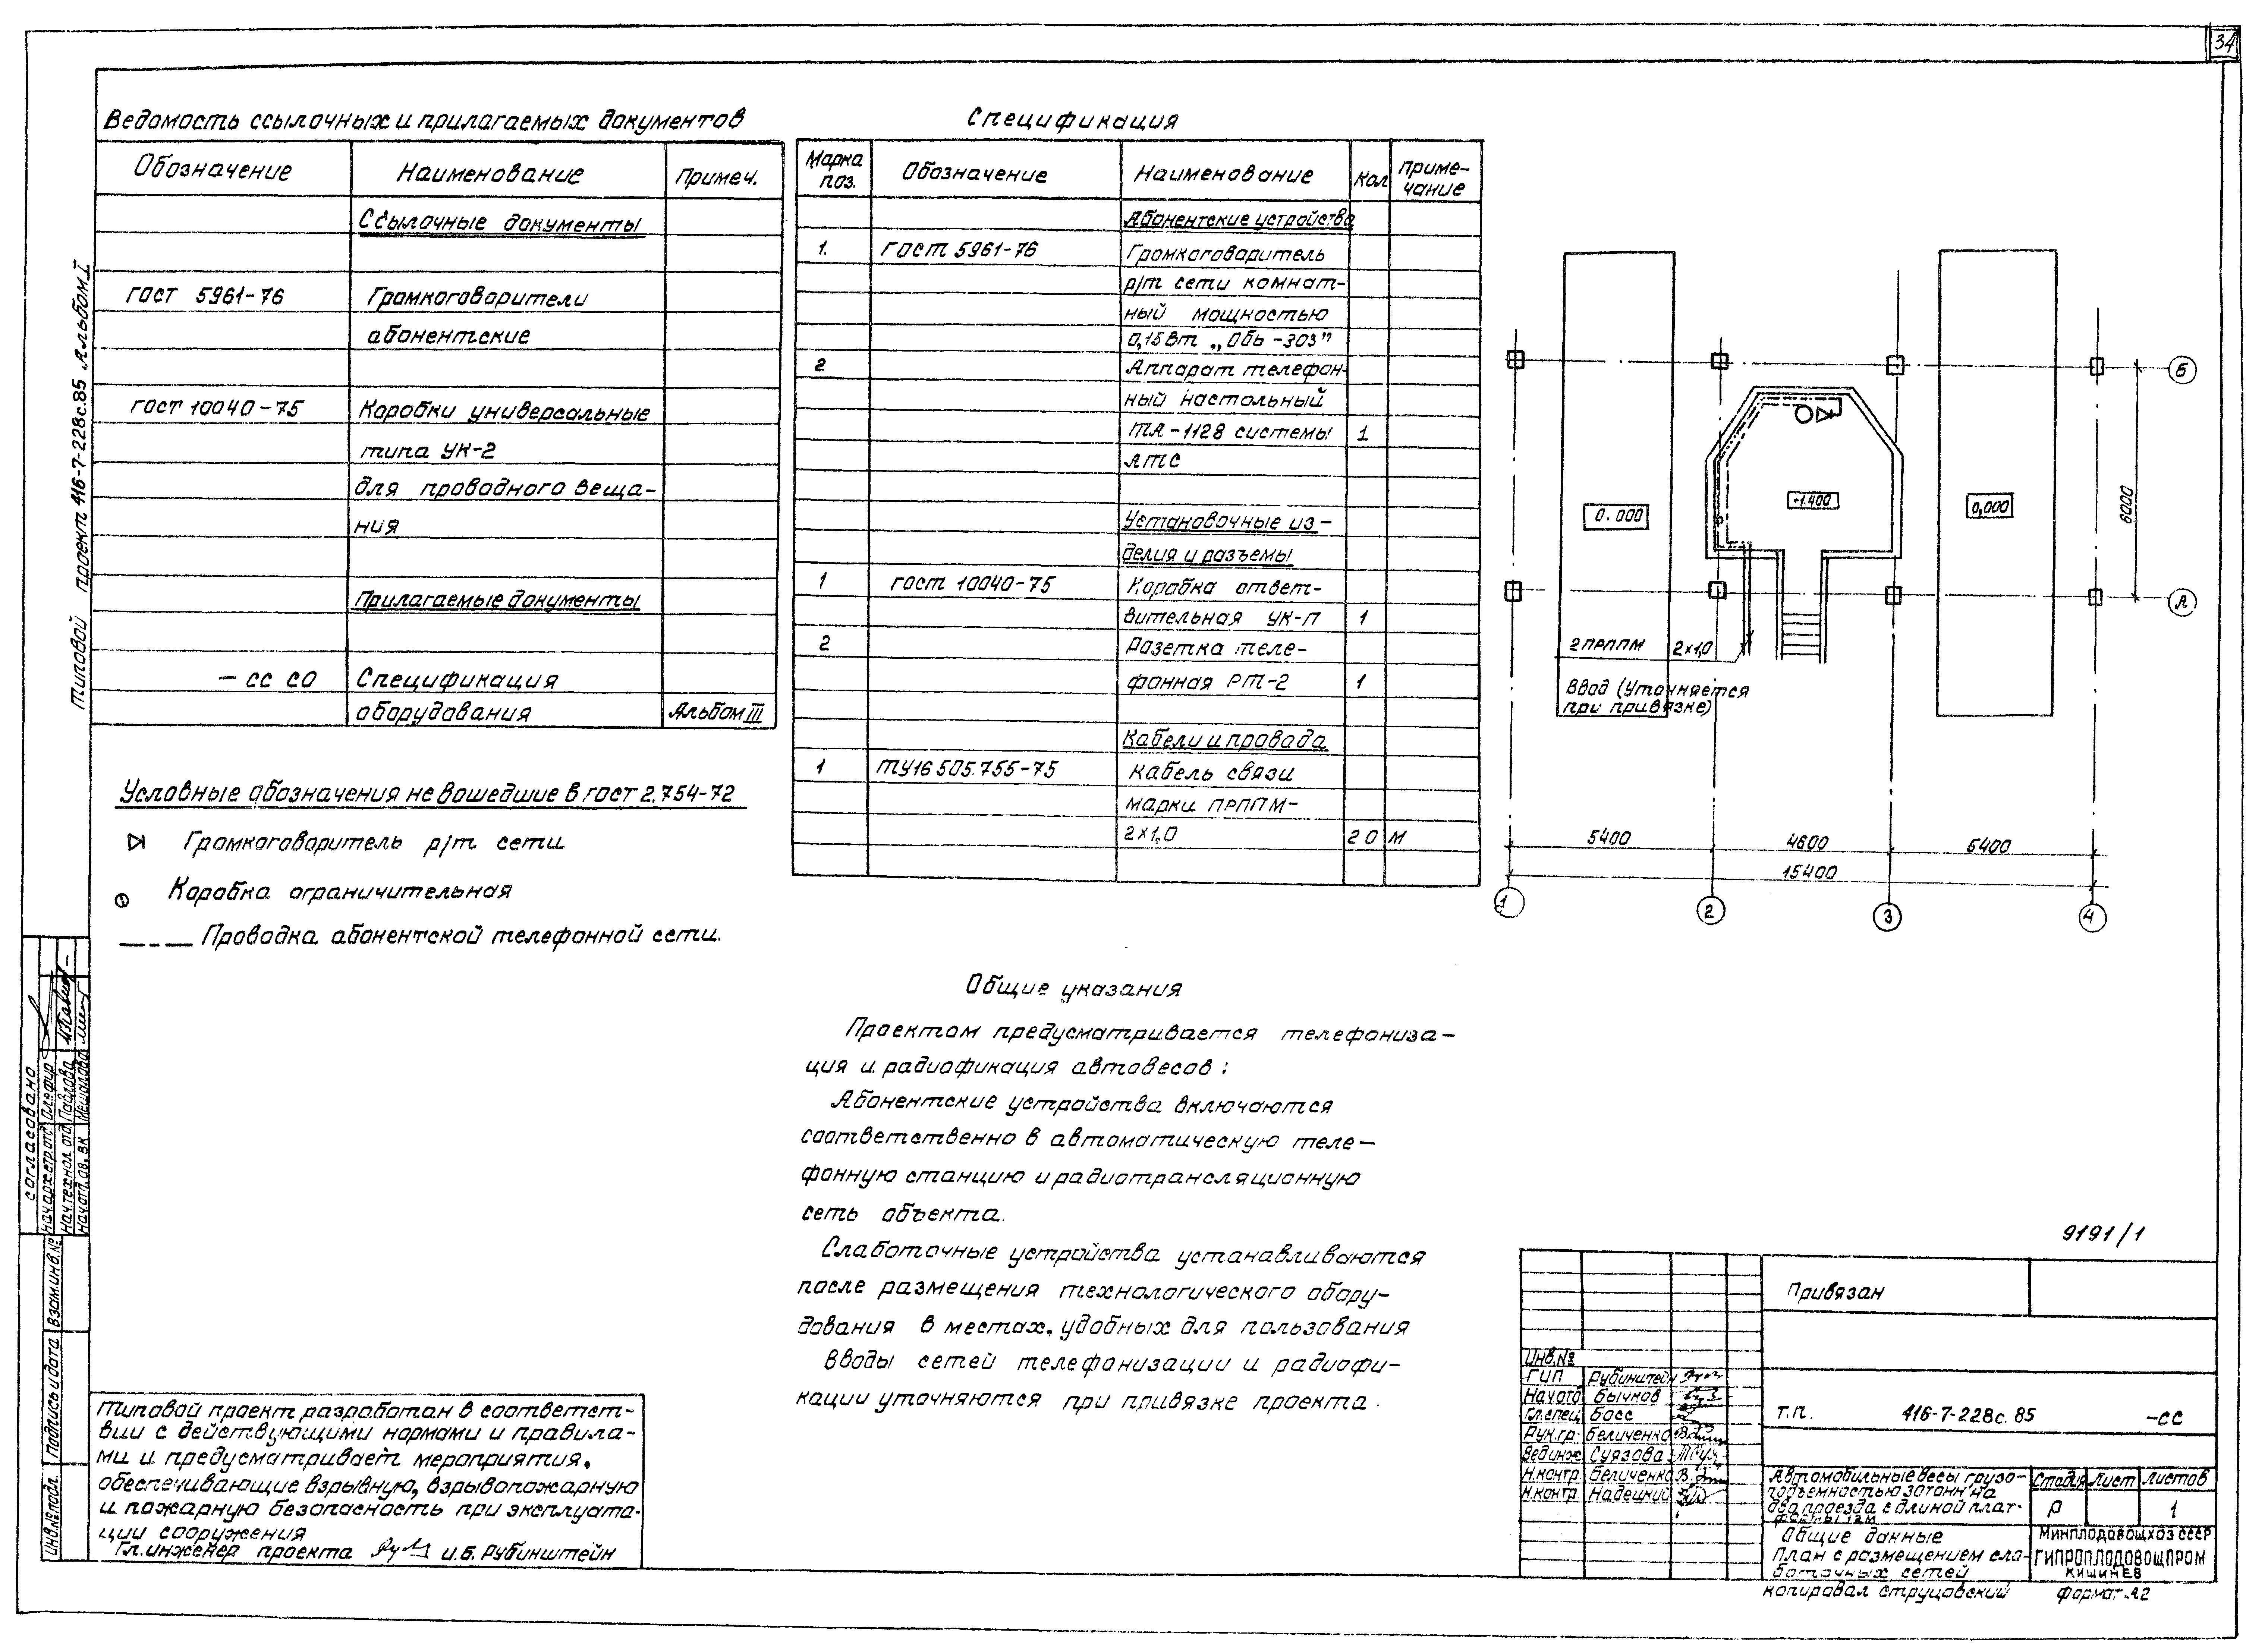 34
Типовой проект 416-7-228с.85 Альбом I
Ведомость ссылочных и прилагаемых документов
Обозначение Наименование Примеч.
Ссылочные документы
ГОСТ 5961-76 Громкоговорители
абонентские
ГОСТ 10040-75 Коробки универсальные
типа УК-2
для проводного веща-
ния
Прилагаемые документы
- СС СО Спецификация
оборудования Альбом III
Условные обозначения не вошедшие в ГОСТ 2.754-72
Громкоговоритель р/т сети
Коробка ограничительная
Проводка абонентской телефонной сети.
Спецификация
Марка поз. Обозначение Наименование Кол Приме-чание
Абонентские устройства
1. ГОСТ 5961-76 Громкоговоритель
р/т сети комнат-
ный мощностью
0,15Вт „Обь-303"
2 Аппарат телефон-
ный настольный
ТА-1128 системы 1
АТС
Установочные из-
делия и разъемы
1 ГОСТ 10040-75 Коробка ответ-
вительная УК-П 1
2 Розетка теле-
фонная РТ-2 1
Кабели и провода
1 ТУ16 505.755-75 Кабель связи
марки ПРППМ-
2×1,0 20 м
0.000
+1.400
0,000
Б
А
6000
2 ПРППМ 2×1,0
Ввод (Уточняется
при привязке)
5400 4600 5400
15400
1 2 3 4
Общие указания
Проектом предусматривается телефониза-
ция и радиофикация автовесов:
Абонентские устройства включаются
соответственно в автоматическую теле-
фонную станцию и радиотрансляционную
сеть объекта.
Слаботочные устройства устанавливаются
после размещения технологического обору-
дования в местах, удобных для пользования
Вводы сетей телефонизации и радиофи-
кации уточняются при привязке проекта.
Согласовано
Нач.арх.стр.отд Олефир
Нач.технол.отд Павлова
Нач.отд.ов,вк
Взам.инв.№
Подпись и дата
Инв.№ подл.
Типовой проект разработан в соответст-
вии с действующими нормами и правила-
ми и предусматривает мероприятия,
обеспечивающие взрывную, взрывопожарную
и пожарную безопасность при эксплуата-
ции сооружения
Гл.инженер проекта И.Б.Рубинштейн
9191/1
Привязан
Инв.№
ГИП Рубинштейн
Нач отд Бычков
Гл.спец Басс
Рук.гр. Беличенко
Вед.инж Суязова
Н.контр Беличенко
Н.контр Надецкий
Т.П. 416-7-228с.85 -СС
Автомобильные весы грузо-
подъемностью 30 тонн на
два проезда с длиной плат-
формы 12м
Стадия Лист Листов
Р 1
Общие данные
План с размещением сла-
боточных сетей
Минплодовощхоз СССР
ГИПРОПЛОДОВОЩПРОМ
КИШИНЕВ
Копировал Струцовский Формат А2